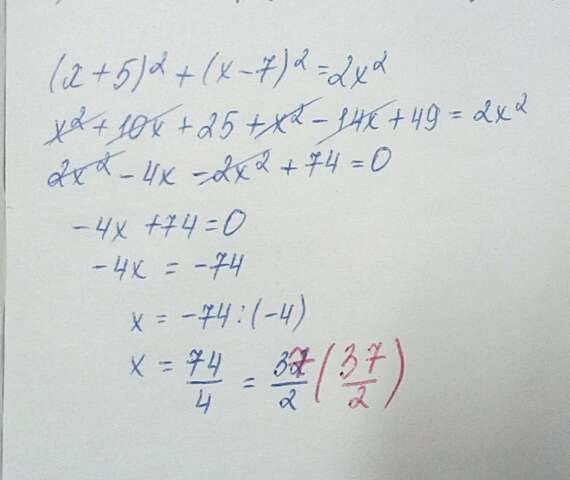 (x+5)² + (x-7)² = 2x²
x² + 10x + 25 + x² - 14x + 49 = 2x²
2x² - 4x - 2x² + 74 = 0
-4x + 74 = 0
-4x = -74
x = -74 : (-4)
x = 74/4 = 37/2 (37/2)